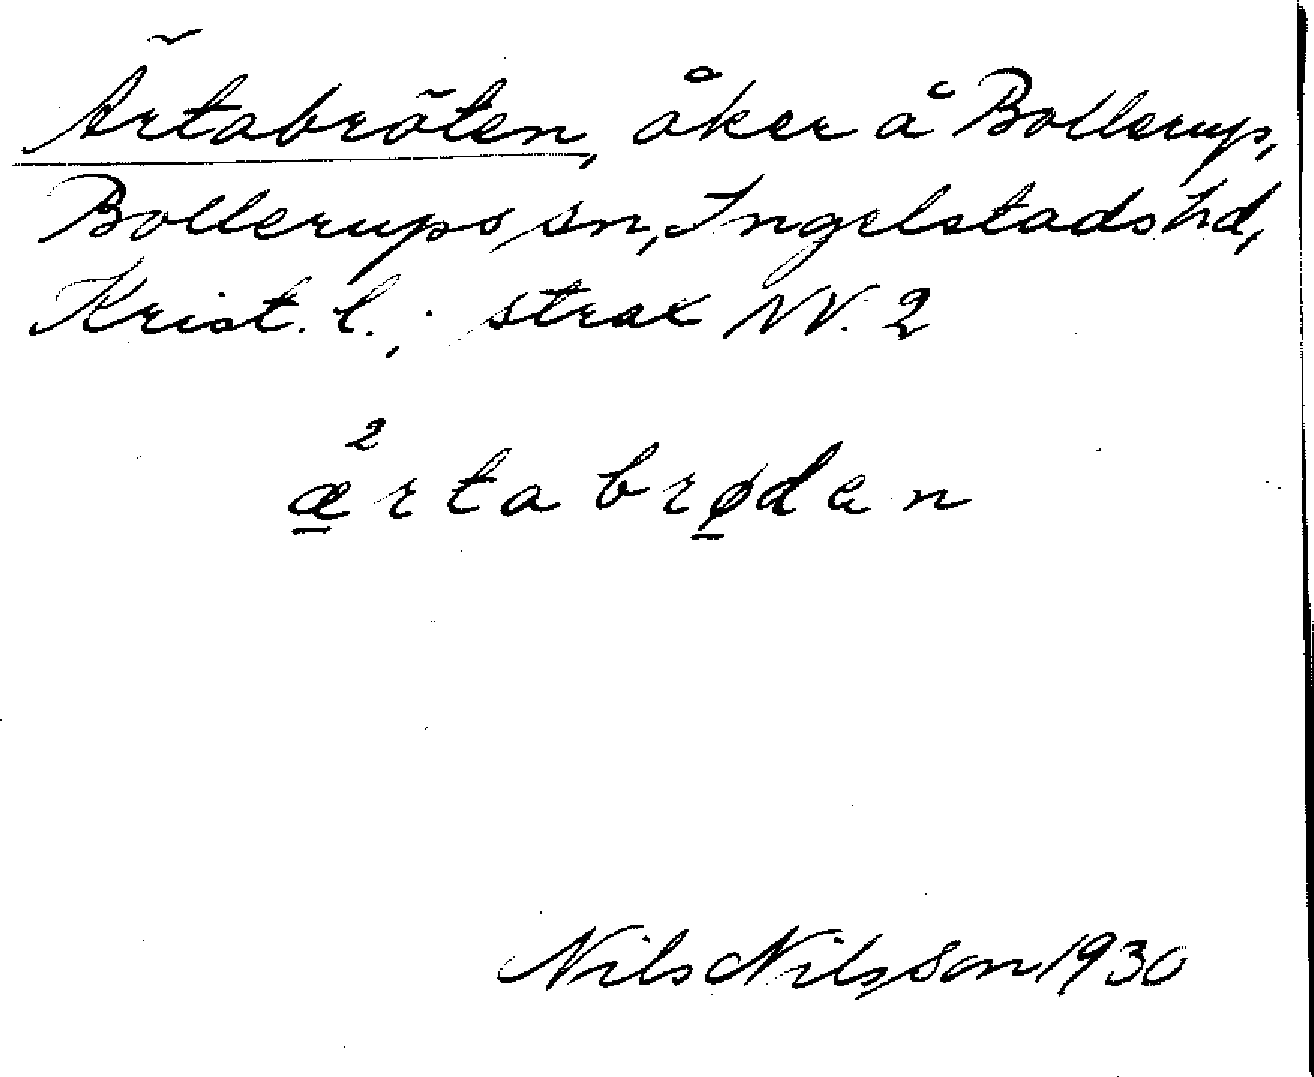 Ärtabröten, åker å Bollerup,
Bollerups sn, Ingelstads hd,
Krist. l.; strax NV. 2
²ærtabrødan
Nils Nilsson 1930